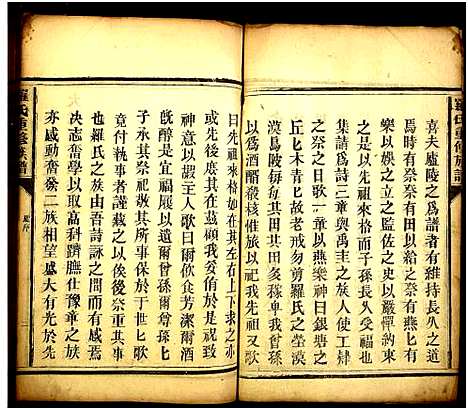 羅氏重修族譜
喜夫廬陵之為譜者有維持長久之道
焉時有祭祭有田以給之祭有燕七有
樂以娛之立之監佐之史以嚴禪約又
集詩為詩三章與禹圭之族人使工肄
之祭之日歌一章以燕樂神曰銀塘之
丘七木青七戒勿剪羅氏之塋漠
漠者田其田其耕其穫萬億曾孫
以為酒醑殽核惟旅以祀我先祖又
曰先祖來格如在其左右上下求之亦
或庶幾先祖來格而子孫長久福是
致永先祖之在茲顧我委侑於是式
作以胡叟主人歌曰爾飲食芳潔爾酒
既醇是宜福履以遺爾曾爾孫七
子承其祭祀敬其所尊施於世七歌
竟付執事者謹藏之以俟後祭重其事
也羅氏之族由吾詩詠之而有感焉
決志奮學以取高科躋膴仕豫章之族
亦感動奮發二族相望盛大有光於先
羅氏重修族譜